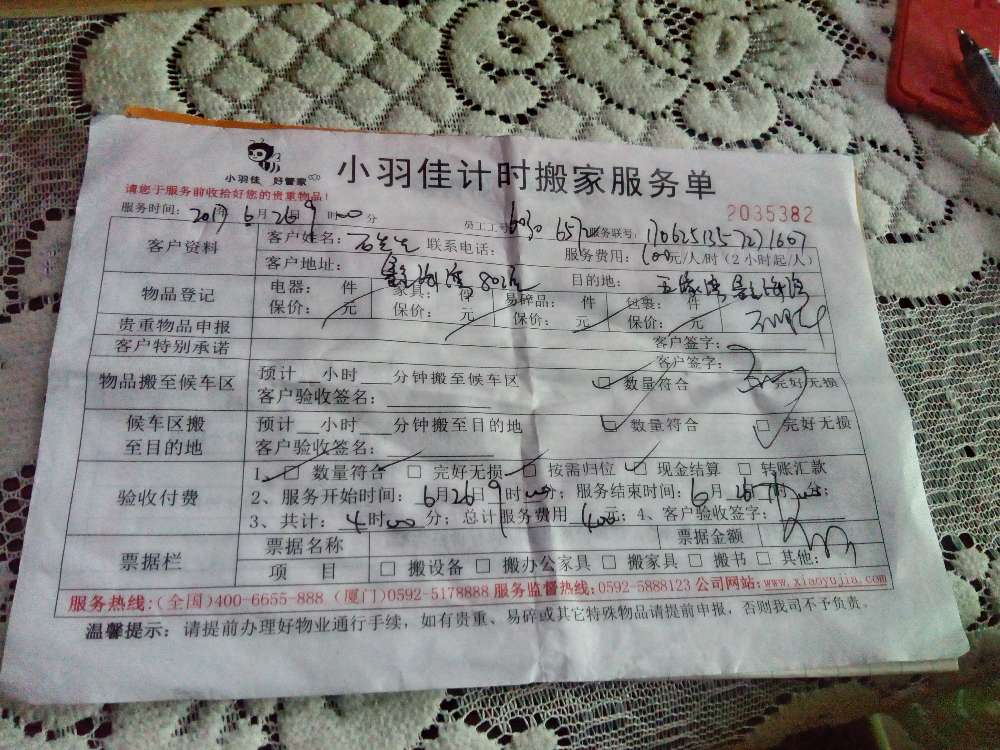 小羽佳 好管家
小羽佳计时搬家服务单
请您于服务前收拾好您的贵重物品！
2035382
服务时间：2017年6月26日9时00分 员工工号：6030 6572 服务联号：
客户资料 客户姓名：石先生 联系电话： 服务费用：100元/人/时（2小时起/人）
客户地址： 目的地：
物品登记 电器： 件 家具： 件 易碎品： 件 包装： 件
保价： 元 保价： 元 保价： 元 保价： 元
贵重物品申报 客户签字：
客户特别承诺 客户签字：
物品搬至候车区 预计__小时___分钟搬至候车区 □ 数量符合 □ 完好无损
客户验收签名：
候车区搬至目的地 预计__小时___分钟搬至目的地 □ 数量符合 □ 完好无损
客户验收签名：
验收付费 1、□ 数量符合 □ 完好无损 □ 按需归位 □ 现金结算 □ 转账汇款
2、服务开始时间：6月26日9时00分；服务结束时间：6月26日 时00分；
3、共计：4时00分；总计服务费用 400元；4、客户验收签字：
票据栏 票据名称 票据金额
项 目 □ 搬设备 □ 搬办公家具 □ 搬家具 □ 搬书 □ 其他：
服务热线:(全国)400-6655-888 (厦门)0592-5178888 服务监督热线:0592-5888123 公司网站:www.xiaoyujia.com
温馨提示：请提前办理好物业通行手续，如有贵重、易碎或其它特殊物品请提前申报，否则我司不予负责。